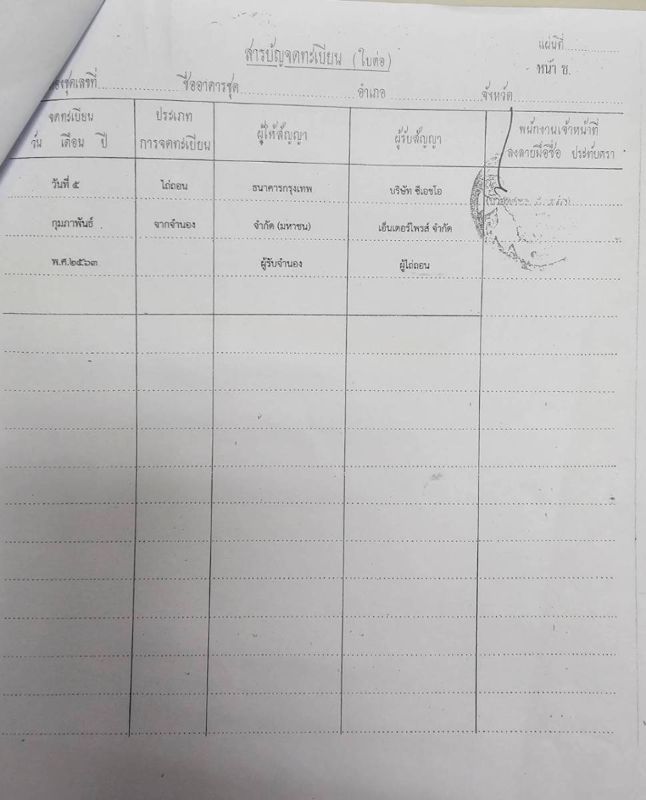 แผ่นที่
สารบัญจดทะเบียน (ใบต่อ)
หน้า ช.
ชุดเลขที่ ชื่ออาคารชุด อำเภอ จังหวัด
จดทะเบียน ประเภท ผู้ให้สัญญา ผู้รับสัญญา พนักงานเจ้าหน้าที่
วัน เดือน ปี การจดทะเบียน ลงลายมือชื่อ ประทับตรา
วันที่ ๕ ไถ่ถอน ธนาคารกรุงเทพ บริษัท ซีเอชโอ
กุมภาพันธ์ จากจำนอง จำกัด (มหาชน) เอ็นเตอร์ไพรส์ จำกัด
พ.ศ.๒๕๖๓ ผู้รับจำนอง ผู้ไถ่ถอน